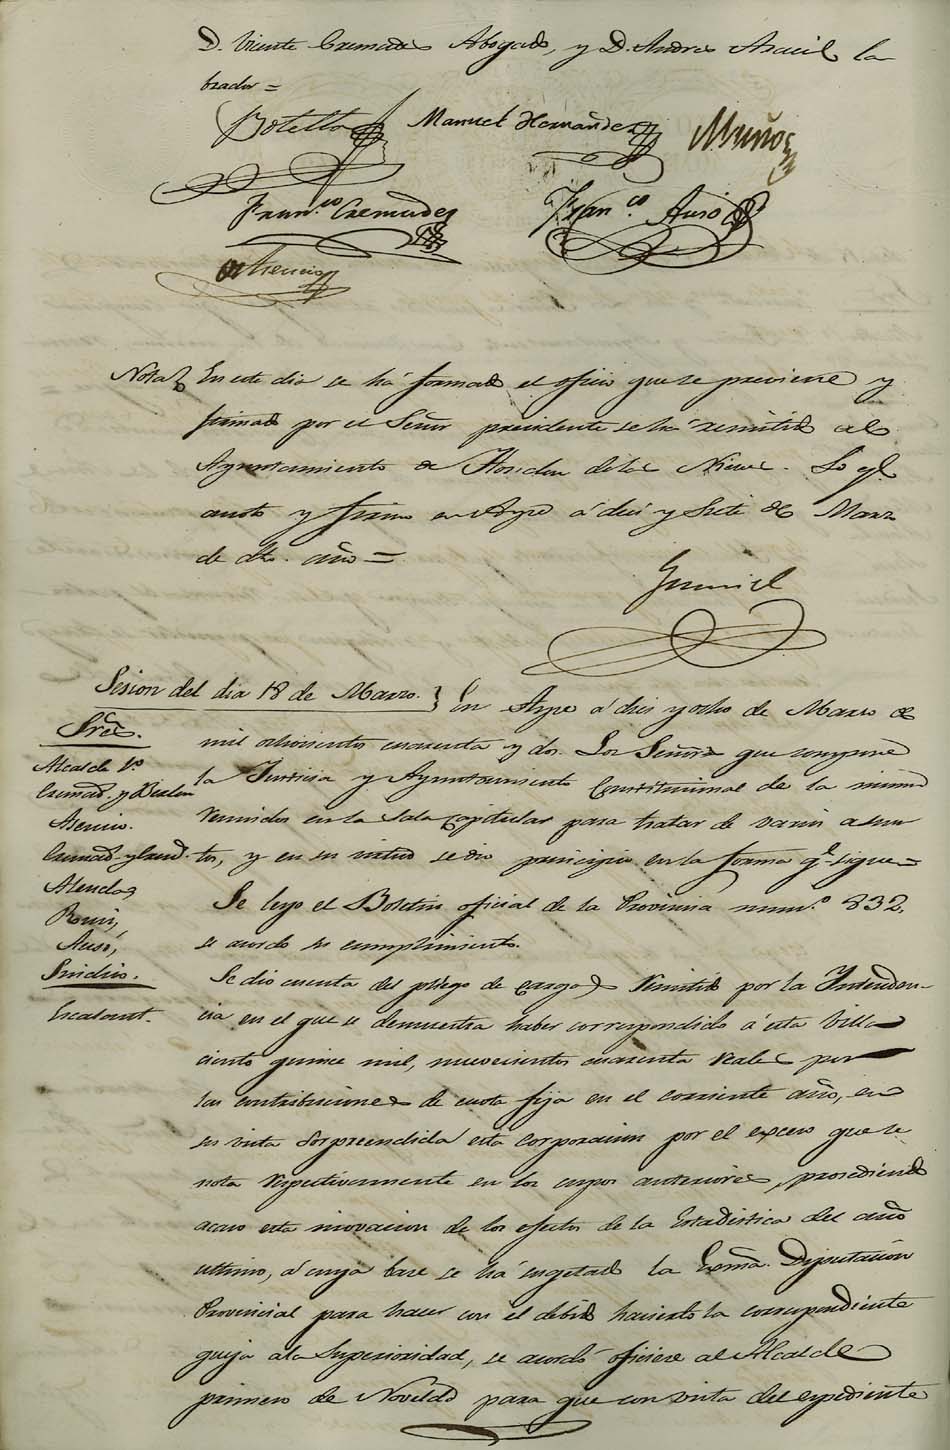 D. Vicente Cremades Abogado, y D. Andres Aracil la
brador =
Botella
Manuel Hernandez
Muñoz
Fran.co Cremades
Fran.co Ausó
Asencio
Nota
En este dia se há formado el oficio que se previene y
firmado por el Señor presidente se há remitido al
Ayuntamiento de Hondon delas Nieves. Lo q.l
anoto y firmo en Aspe á diez y Siete de Marzo
de dho. año =
Sesion del dia 18 de Marzo.
En Aspe á diez y ocho de Marzo de
mil ochocientos cuarenta y dos. Los Señores que componen
la Justicia y Ayuntamiento Constitucional de la misma
reunidos en la Sala Capitular para tratar de varios asun
tos, y en su virtud se dio principio en la forma q.e sigue =
Sres.
Alcalde 1.o
Cremad. y
Asencio.
Cremad. y
Ausó,
Sindico.
Escalant.
Se leyo el Boletin oficial de la Provincia num.o 832,
se acordo su cumplimiento.
Se dio cuenta del pliego de cargos remitido por la Intenden-
cia en el que se demuestra haber correspondido á esta Villa
ciento quince mil, nuevecientos cuarenta reales por
las contribuciones de cuota fija en el corriente año, en
su vista sorpreendida esta corporacion por el exceso que se
nota respectivamente en los cupos anteriores, procediendo
acaso esta inovacion de los efectos de la Estadistica del año
ultimo, á cuya base se há sugetado la Exma. Diputación
Provincial para hacer con el debido hacierto la correspondiente
queja ala Superioridad, se acordó oficiese al Alcalde
primero de Novelda para que con vista del expediente